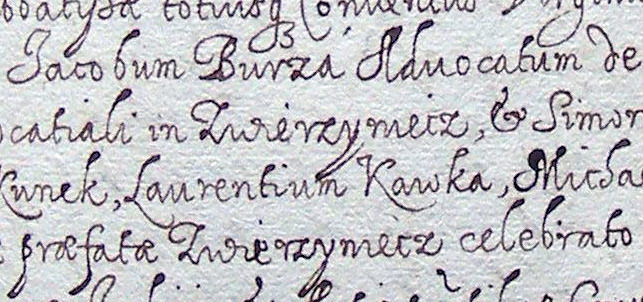 totiusq Conventus
Jacobum Burza Advocatum de
in Zwierzyniecz, & Simon
Kunek, Laurentium Kawka, Micha
præfatæ Zwierzyniecz celebrato